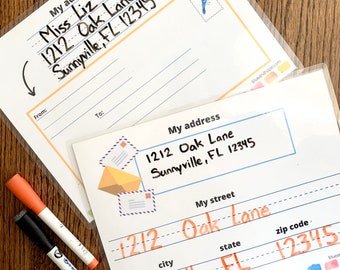 My a
Miss Liz
1212 Oak Lane
Sunnyville, FL 12345
from:
to:
My address
1212 Oak Lane
Sunnyville, FL 12345
My street
1212 Oak Lane
city state zip code
FL 12345